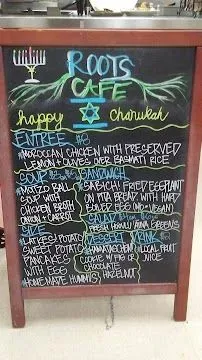 ROOTS
CAFE
happy chanukah
ENTREE $8
MOROCCAN CHICKEN WITH PRESERVED
LEMON + OLIVES OVER BASMATI RICE
SOUP
MOTZO BALL
SOUP WITH
CHICKEN BROTH
ONION + CARROT
SANDWICH
SABICH! FRIED EGGPLANT
ON PITA BREAD WITH HARD
BOILED EGG
SALAD
GREENS
SIDE
LATKES! POTATO
SWEET POTATO
PANCAKES
WITH EGG
HOMEMADE HUMMUS
DESSERT
HAMANTASCHEN
COOKIE W/ FIG OR
CHOCOLATE
HAZELNUT
DRINK
LOCAL FRUIT
JUICE